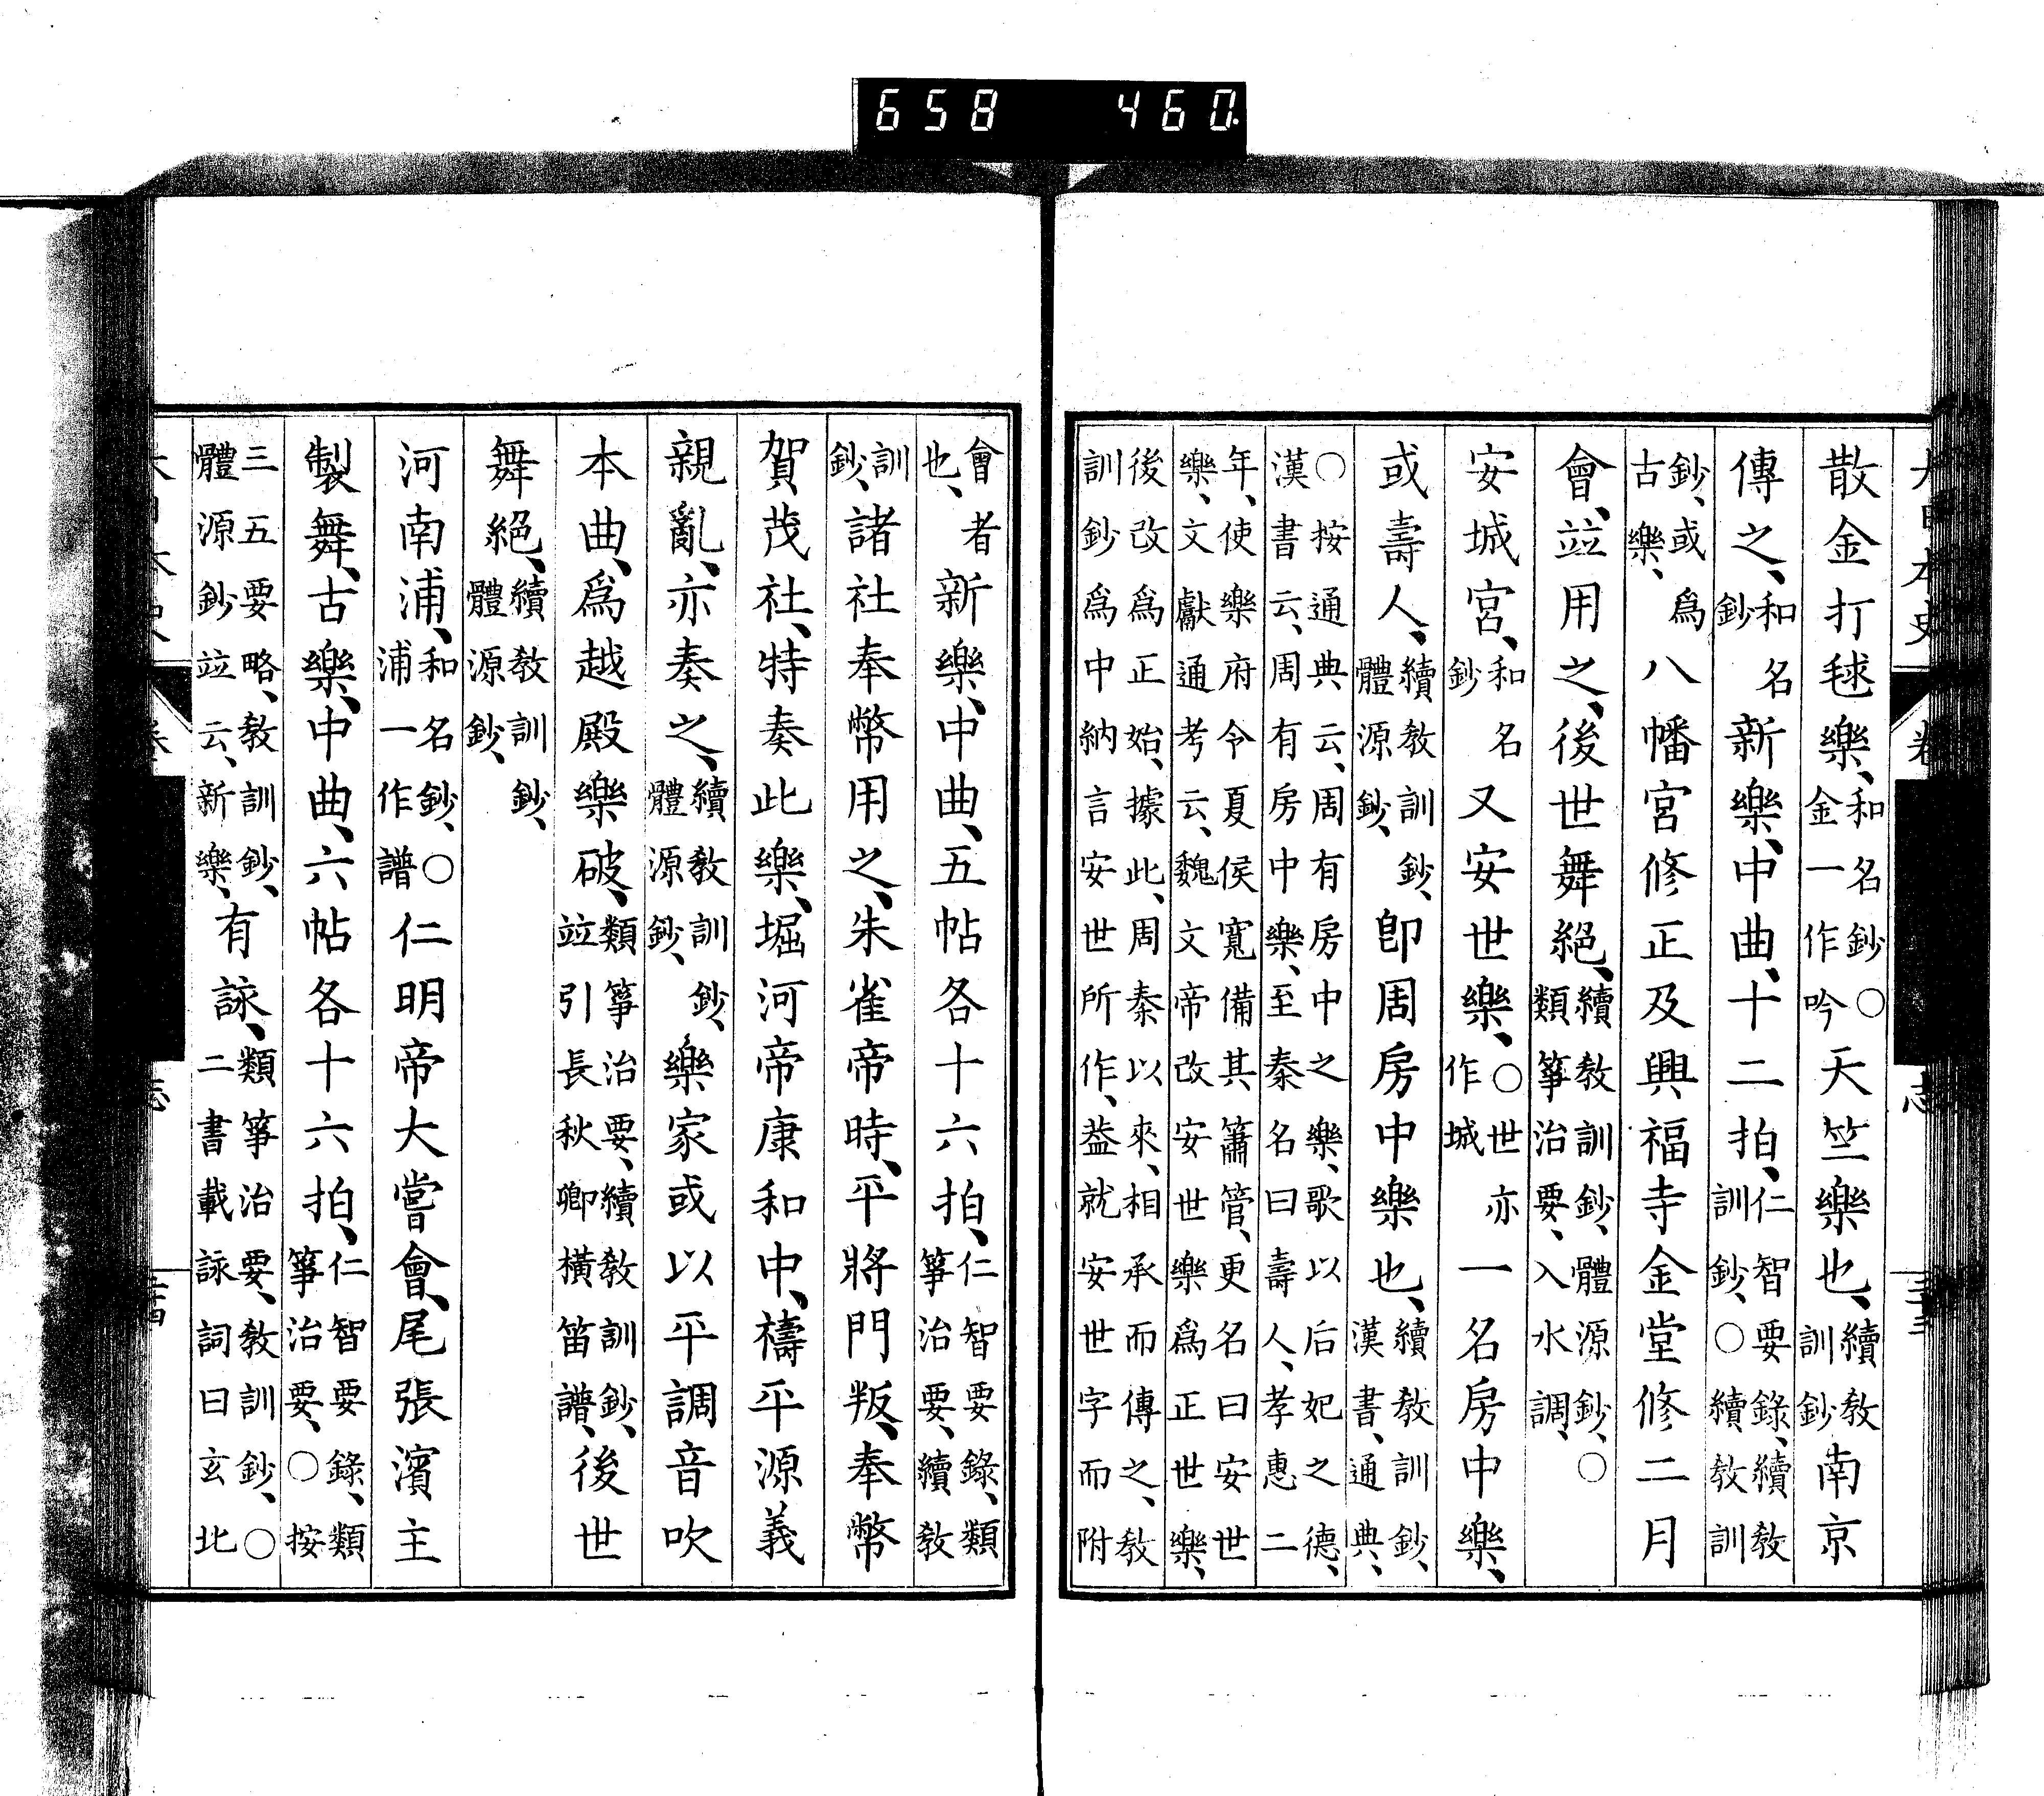 大日本史 卷 志
散金打毬樂、和名鈔○金一作吟天竺樂也、續教訓鈔南京
傳之、和名鈔新樂、中曲、十二拍、仁智要錄、續教訓鈔、○續教訓
鈔、或爲古樂、八幡宮修正及興福寺金堂修二月
會、竝用之、後世舞絕、續教訓鈔、體源鈔、○類箏治要、入水調、
安城宮、和名鈔又安世樂、○世亦作城一名房中樂、
或壽人、續教訓鈔、體源鈔、卽周房中樂也、續教訓鈔、漢書、通典、
○按通典云、周有房中之樂、歌以后妃之德、
漢書云、周有房中樂、至秦名曰壽人、孝惠二
年、使樂府令夏侯寬備其簫管、更名曰安世
樂、文獻通考云、魏文帝改安世樂爲正世樂、
後改爲正始、據此、周秦以來、相承而傳之、教
訓鈔爲中納言安世所作、益就安世字而附
會者也、新樂、中曲、五帖各十六拍、仁智要錄、類箏治要、續教
訓鈔、諸社奉幣用之、朱雀帝時、平將門叛、奉幣
賀茂社、特奏此樂、堀河帝康和中、禱平源義
親亂、亦奏之、續教訓鈔、體源鈔、樂家或以平調音吹
本曲、爲越殿樂破、類箏治要、續教訓鈔、竝引長秋卿橫笛譜、後世
舞絕、續教訓鈔、體源鈔、
河南浦、和名鈔、○浦一作譜仁明帝大嘗會、尾張濱主
製舞、古樂、中曲、六帖各十六拍、仁智要錄、類箏治要、○按
三五要略、教訓鈔、體源鈔竝云、新樂、有詠、類箏治要、教訓鈔、○二書載詠詞曰玄北